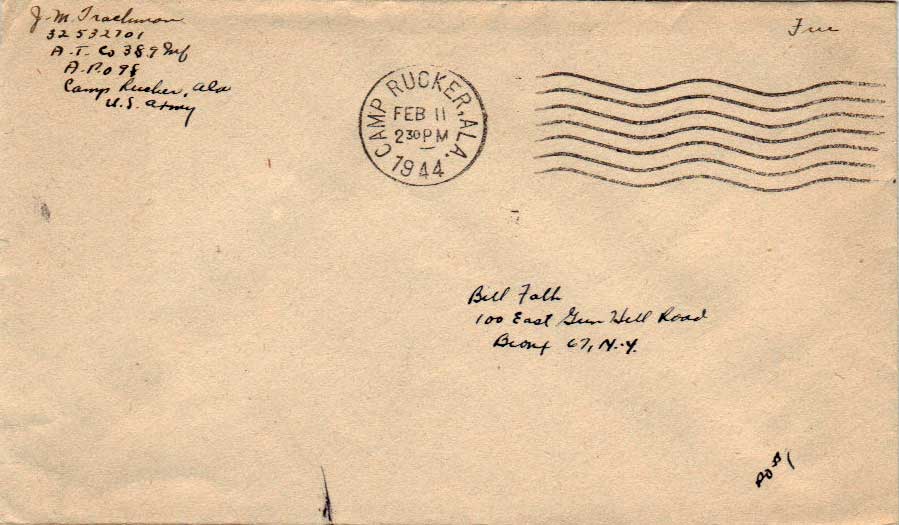 J. M. Trachman
32532701
A.T. Co 389 Inf
A.P.O 98
Camp Rucker, Ala
U.S. Army
Free
CAMP RUCKER, ALA.
FEB 11
2 30 PM
1944
Bill Falk
100 East Gun Hill Road
Bronx 67, N.Y.